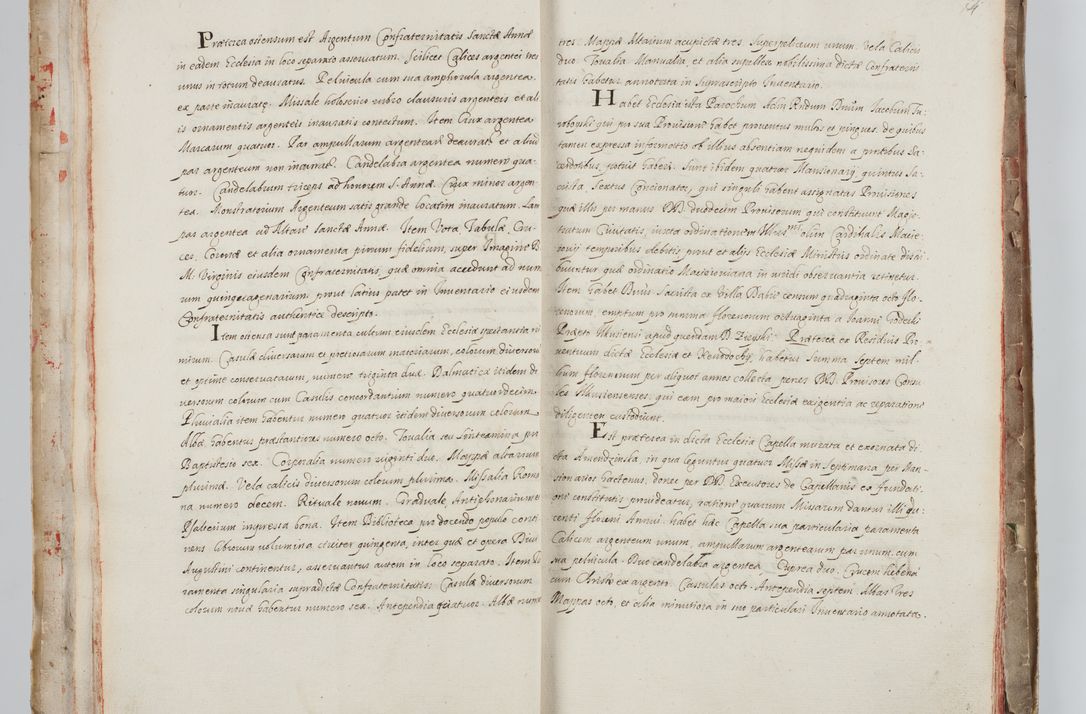 Præterea ostensum est Argentum Confraternitatis Sanctæ Annæ
in eadem Ecclesia in loco separato asservatum. Scilicet Calices argentei tres
unus in totum deauratus. Pelvicula cum sua amphorula argentea
ex parte inauratæ. Missale holoserico rubro clausuris argenteis et ali
is ornamentis argenteis inauratis contectum. Item Crux argentea
Marcarum quatuor. Par ampullarum argentearum deauratarum et aliud
par argenteum non inauratum. Candelabra argentea numero qua-
tuor. Candelabrum triceps ad honorem S. Annæ. Crux minor argen-
tea. Monstratorium Argenteum satis grande locatim inauratum. Lam
pas argentea ad Altare Sanctæ Annæ. Item Vota, Tabulæ, Cru-
ces, Coronæ et alia ornamenta piorum fidelium, super Imagine B.
M. Virginis eiusdem Confraternitatis, quæ omnia accedunt ad nume
rum quinquagenarium, prout latius patet in Inventario eiusdem
Confraternitatis authentice descripto.
Item ostensa sunt paramenta cultum eiusdem Ecclesiæ spectantia ni
mirum. Casulæ diversarum et pretiosarum materiarum, colorum diversorum
et optime conservatarum, numero triginta duæ. Dalmaticæ itidem di
versorum colorum cum Casulis concordantium numero quatuordecim.
Pluvialia item habentur numero quatuor itidem diversorum colorum
Albæ habentur præstantiores numero octo. Toualia seu linteamina pro
Baptisterio sex. Corporalia numero viginti duo. Mappæ altarium
plurimæ. Vela calicis diversorum colorum plurima. Missalia Roma
na numero decem. Rituale novum. Graduale, Antiphonarium et
Psalterium impressa bona. Item Biblioteca pro docendo populo conti
nens librorum volumina circiter quingenta, inter quæ et opera Divi
Augustini continentur, asservantur autem in loco separato. Item
ramenta singularia supradictæ Confraternitatis: Casulæ diversorum
colorum novæ habentur numero sex. Antependia quatuor. Albæ nume
tres Mappæ Altarium acupictæ tres. Superpelliceum unum. Vela Calicis
duo. Toualia Manualia, et alia supellex nobilissima dictæ Confraterni
tatis habetur annotata in suprascripto Inventario.
Habet Ecclesia ista Parochum Adm Rndum Dnum Iacobum Tu-
robojski qui pro sua Provisione habet proventus multos et pingues. de quibus
tamen expressa informatio ob illius absentiam nequidem a præsentibus Sa-
cerdotibus, potuit haberi. Sunt ibidem quatuor Mansionarij, quintus Sa-
crista, Sextus Concionator, qui singuli habent assignatas Provisiones
quæ illis per manus DD. duodecim Provisorum qui constituunt Magis-
tratum Civitatis, iuxta ordinationem Illmi olim Cardinalis Macie
iovij temporibus debitis prout et alijs Ecclesiæ Ministris ordinate distri
buuntur quæ ordinatio Macieioviana in viridi observantia retinetur.
Item habet Dnus Sacrista ex Villa Dabie censum quadraginta octo flo
renorum, emptum pro summa florenorum octuaginta a Ioanni Todecki
Præpto Ilkusiensi apud quendam D. Ziyski. Præterea ex Residuis Pro
ventuum dictæ Ecclesiæ et habetur Summa septem mil-
lium florenorum per aliquot annos collecta, penes DD. Provisores Consu
les Ilkusienses, qui eam pro maiori Ecclesiæ exigentia ac reparatione
diligenter custodiunt.
Est præterea in dicta Ecclesia Capella murata et exornata di
cta Amendzinska, in qua leguntur quatuor Missæ in Septimana per Man-
sionarios hactenus, donec per DD. Executores de Capellanis ex fundati-
one constitutis provideatur, ratione quarum Missarum dantur illis du-
centi floreni Annui. habet hæc Capella sua particularia paramenta
Calicem argenteum unum, ampullarum argentearum par unum, cum
sua pelvicula. Duo candelabra argentea Cuprea duo. Crucem hebena
cum Christo ex argento. Casulas octo. Antependia septem. Albas tres
Mappas octo, et alia minutiora in suo particulari Inventario annotata.